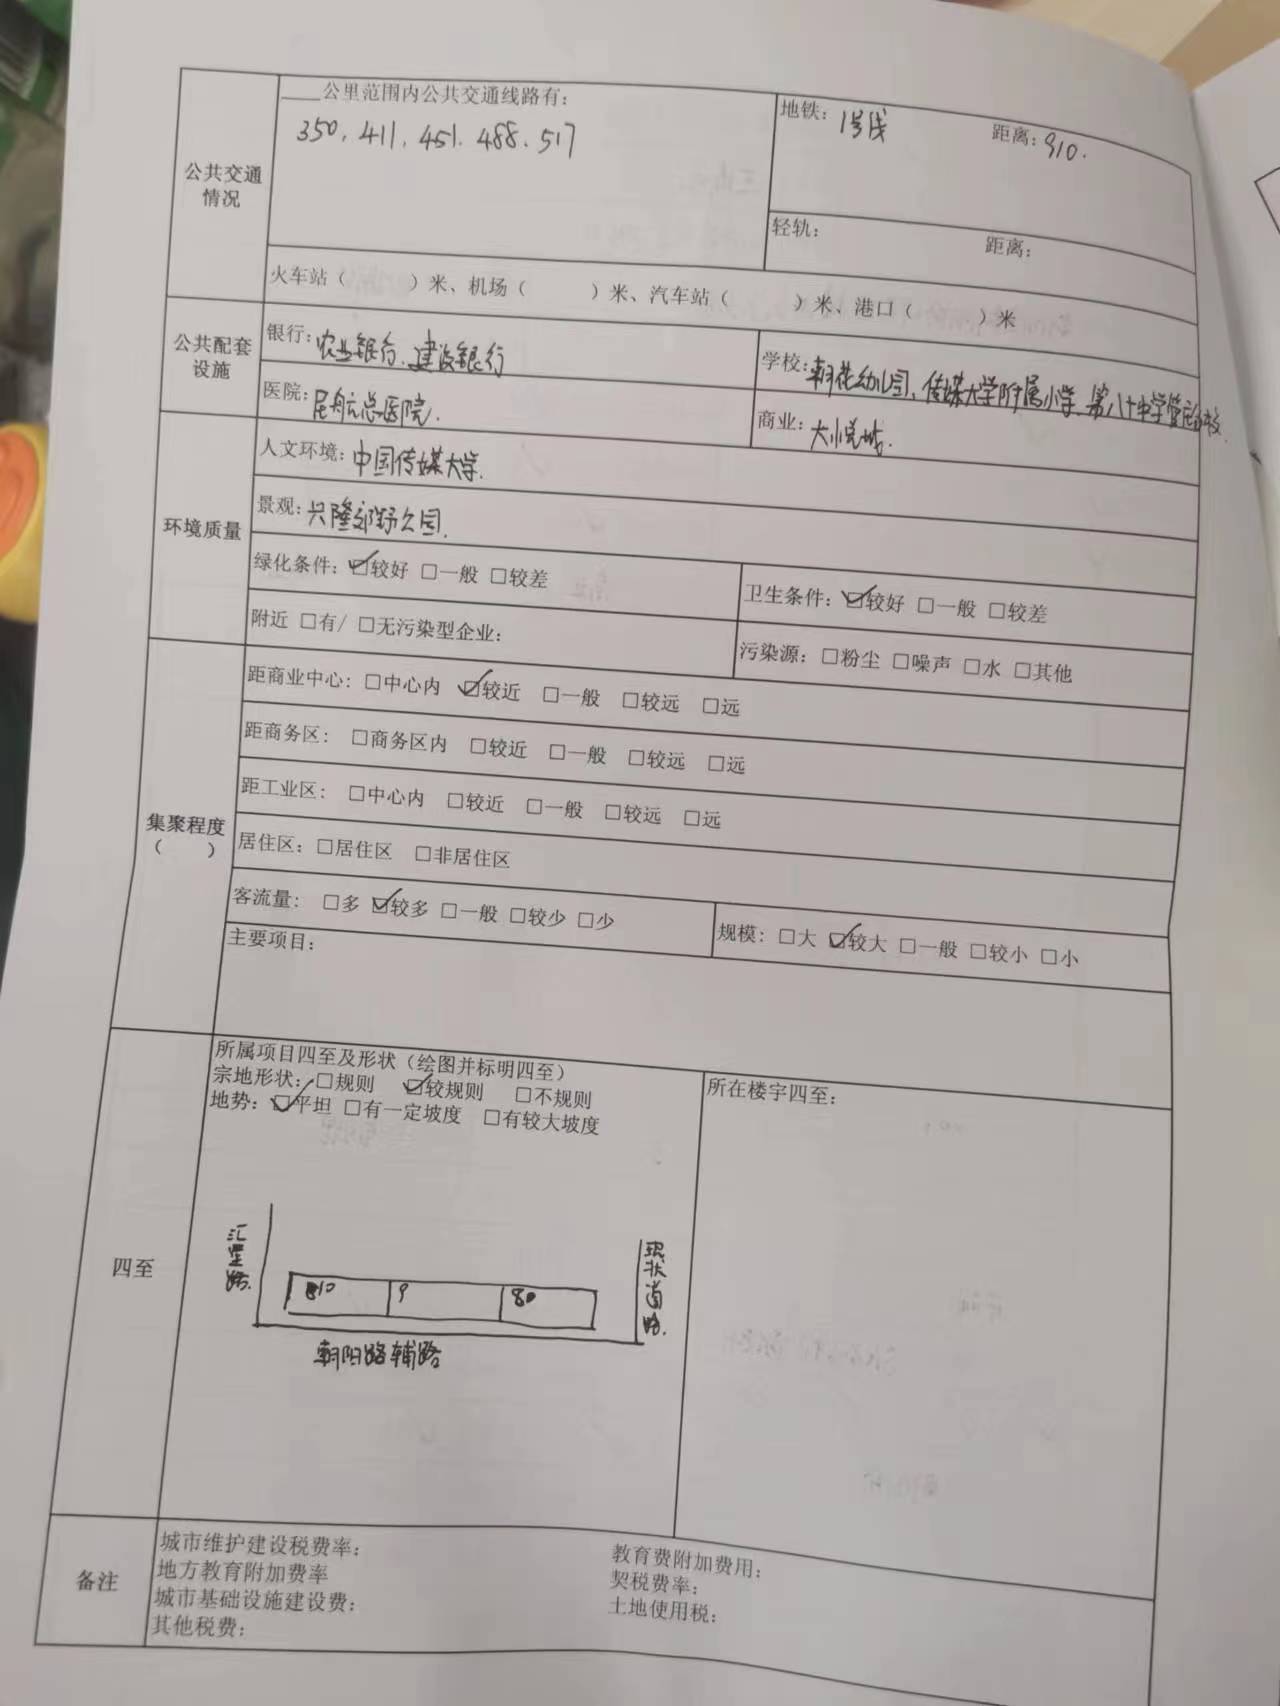 公共交通
情况
____公里范围内公共交通线路有:
350、411、451、488、517
地铁: 1号线 距离: 910.
轻轨: 距离:
火车站( )米、机场( )米、汽车站( )米、港口( )米
公共配套
设施
银行: 农业银行、建设银行
学校: 朝花幼儿园、传媒大学附属小学、第八十中学管庄分校.
医院: 民航总医院.
商业: 大小悦城.
环境质量
人文环境: 中国传媒大学.
景观: 兴隆郊野公园.
绿化条件: ☑较好 □一般 □较差
卫生条件: ☑较好 □一般 □较差
附近 □有/ □无污染型企业:
污染源: □粉尘 □噪声 □水 □其他
集聚程度
( )
距商业中心: □中心内 ☑较近 □一般 □较远 □远
距商务区: □商务区内 □较近 □一般 □较远 □远
距工业区: □中心内 □较近 □一般 □较远 □远
居住区: □居住区 □非居住区
客流量: □多 ☑较多 □一般 □较少 □少
规模: □大 ☑较大 □一般 □较小 □小
主要项目:
四至
所属项目四至及形状(绘图并标明四至)
宗地形状: □规则 ☑较规则 □不规则
地势: ☑平坦 □有一定坡度 □有较大坡度
所在楼宇四至:
汇星路.
810
9
80
现状道路.
朝阳路辅路
备注
城市维护建设税费率:
教育费附加费用:
地方教育附加费率
契税费率:
城市基础设施建设费:
土地使用税:
其他税费: